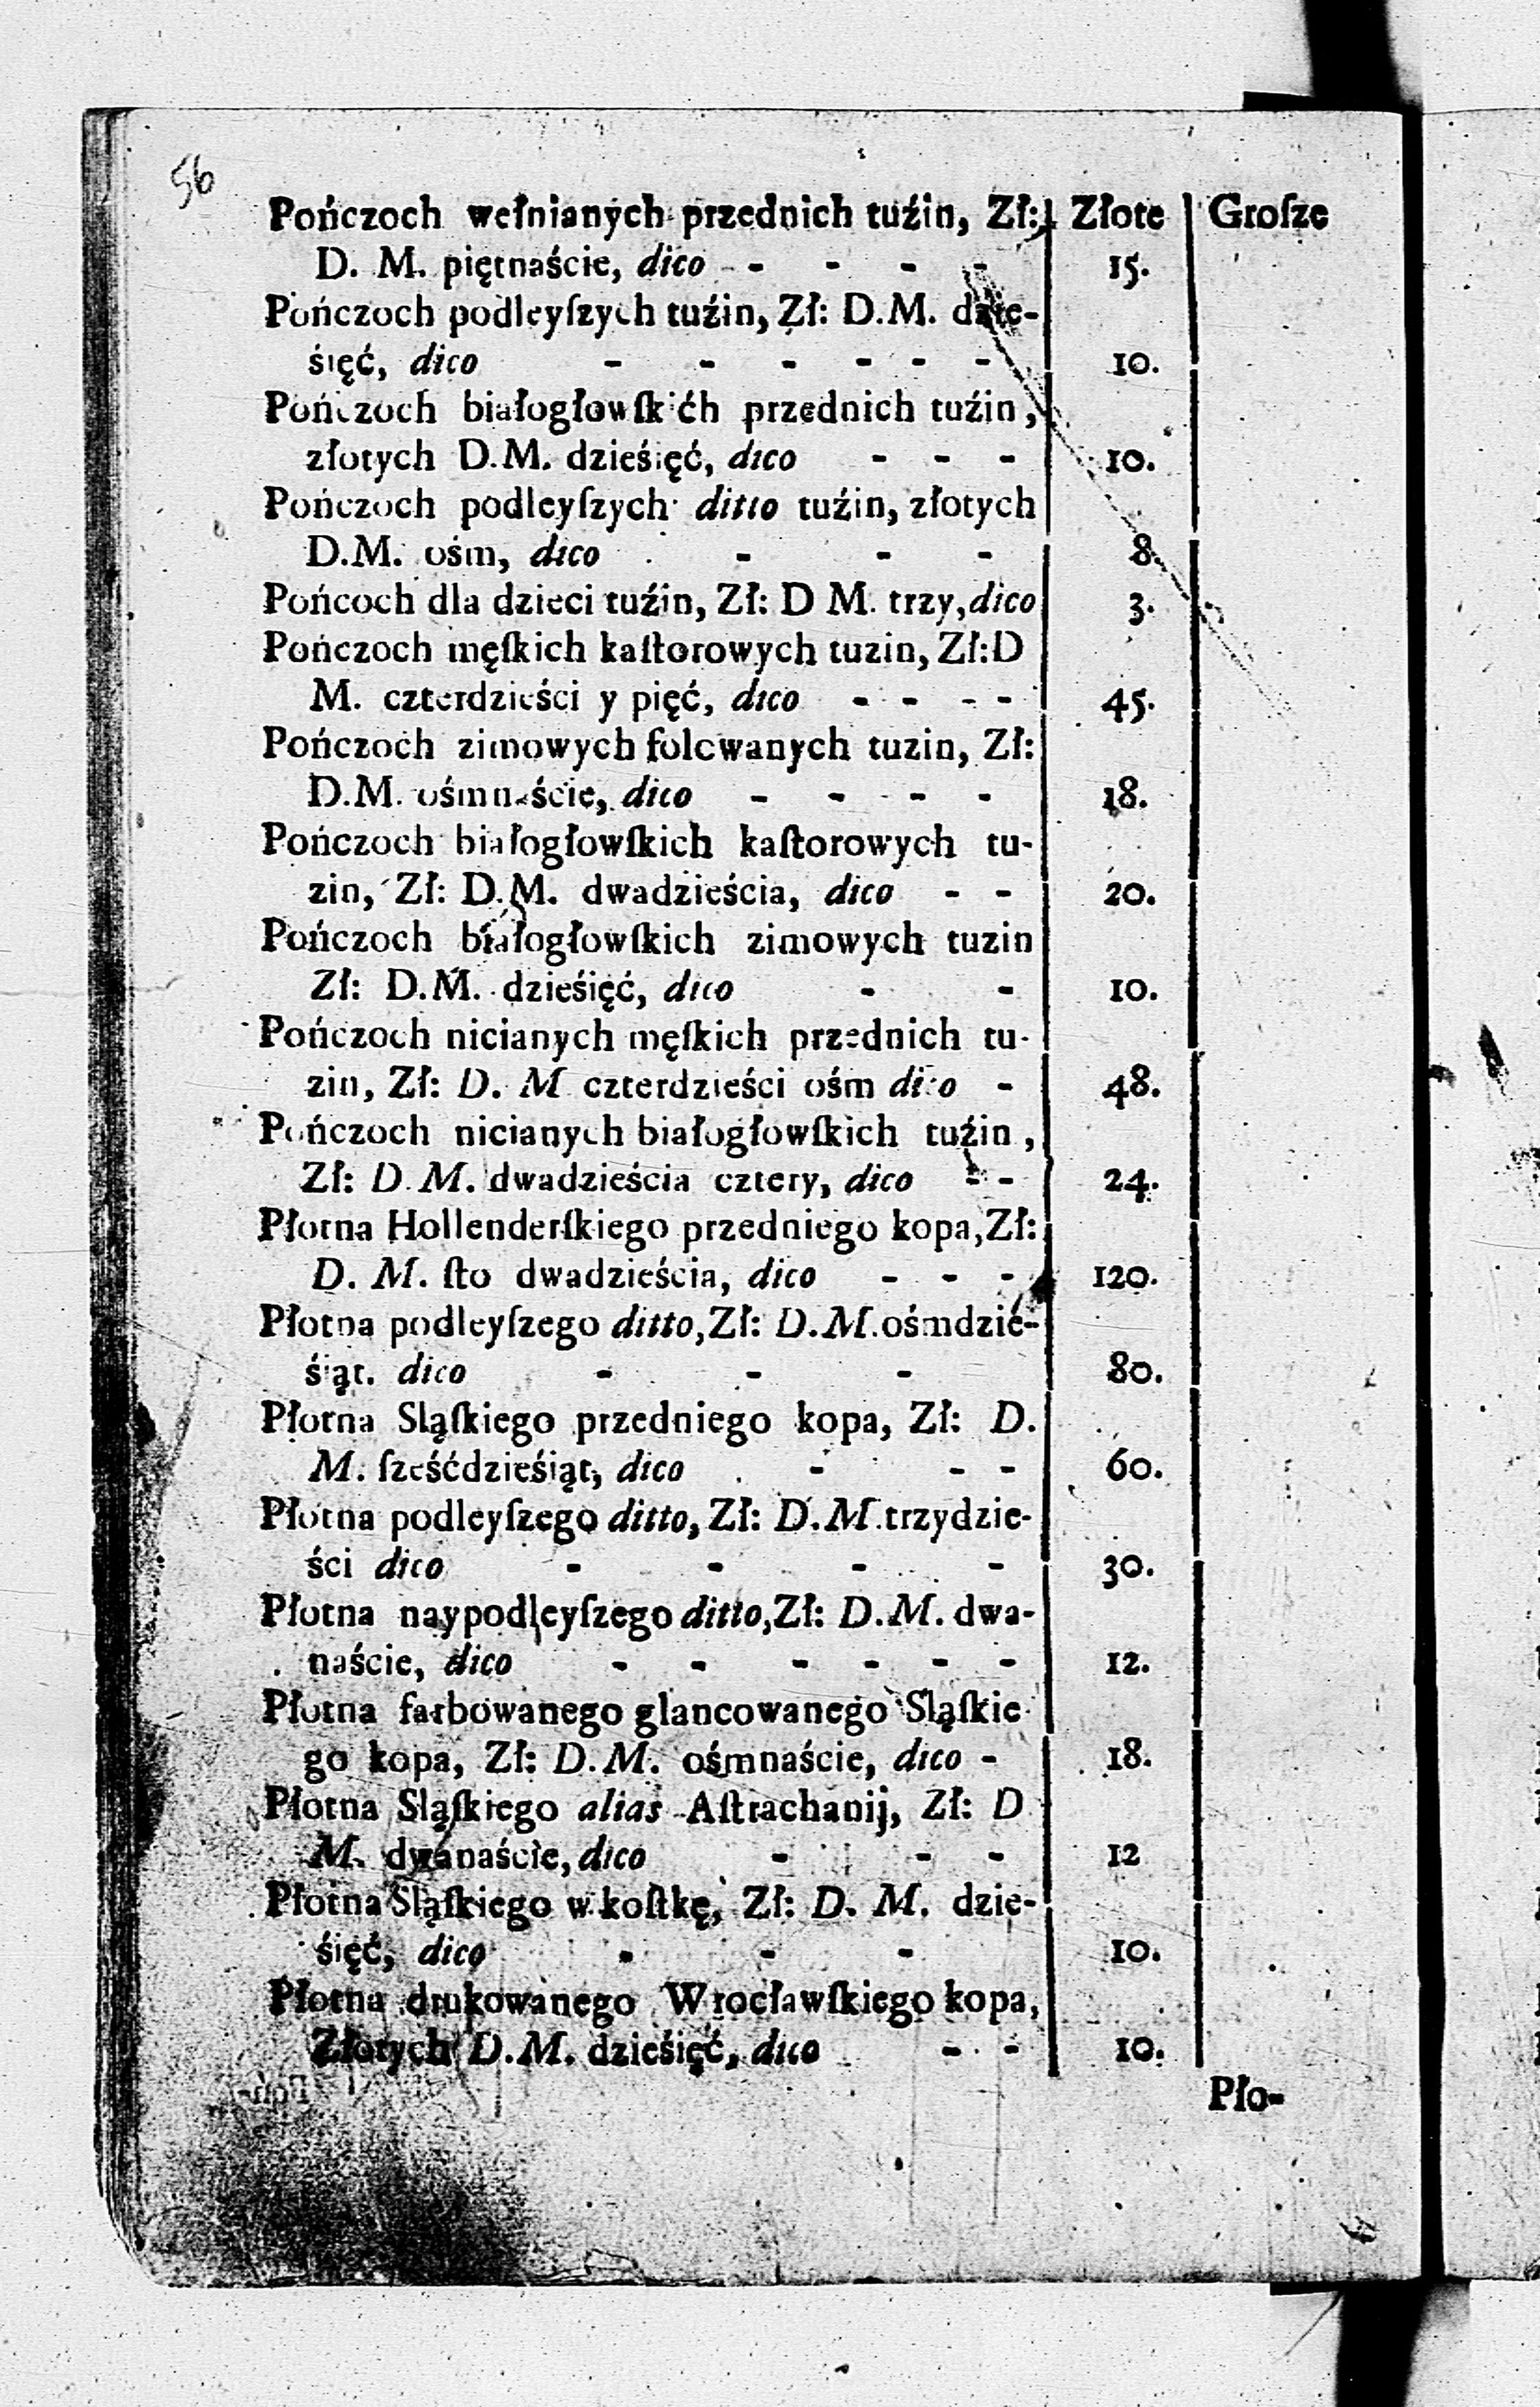 56
Pończoch wełnianych przednich tuźin, Zł: Złote Groſze
D. M. piętnaście, dico - - - - 15.
Pończoch podleyſzych tuźin, Zł: D.M. dzie-
śięć, dico - - - - - - 10.
Pończoch białogłowſkićh przednich tuźin,
złotych D.M. dzieśięć, dico - - - 10.
Pończoch podleyſzych ditto tuźin, złotych
D.M. ośm, dico - - - 8
Pońcoch dla dzieci tuźin, Zł: D M. trzy, dico 3.
Pończoch męſkich kaſtorowych tuzin, Zł:D
M. czterdzieści y pięć, dico - - - - 45.
Pończoch zimowych folcwanych tuzin, Zł:
D.M. ośmnaście, dico - - - - 18.
Pończoch białogłowſkich kaſtorowych tu-
zin, Zł: D.M. dwadzieścia, dico - - 20.
Pończoch białogłowſkich zimowych tuzin
Zł: D.M. dzieśięć, dico - - 10.
Pończoch nicianych męſkich przednich tu-
zin, Zł: D. M czterdzieści ośm dico - 48.
Pończoch nicianych białogłowſkich tuźin,
Zł: D.M. dwadzieścia cztery, dico - - 24.
Płotna Hollenderſkiego przedniego kopa, Zł:
D. M. ſto dwadzieścia, dico - - - 120.
Płotna podleyſzego ditto, Zł: D.M. ośmdzie-
śiąt. dico - - - 80.
Płotna Sląſkiego przedniego kopa, Zł: D.
M. ſześćdzieśiąt, dico - - - 60.
Płotna podleyſzego ditto, Zł: D.M. trzydzie-
ści dico - - - - 30.
Płotna naypodleyſzego ditto, Zł: D.M. dwa-
naście, dico - - - - - - 12.
Płotna farbowanego glancowanego Sląſkie
go kopa, Zł: D.M. ośmnaście, dico - 18.
Płotna Sląſkiego alias Aſtrachanij, Zł: D
M. dwanaście, dico - - - 12
Płotna Sląſkiego w koſtkę, Zł: D. M. dzie-
śięć, dico - - - 10.
Płotna drukowanego Wrocławſkiego kopa,
Złotych D.M. dzieśięć, dico - - 10.
Pło-